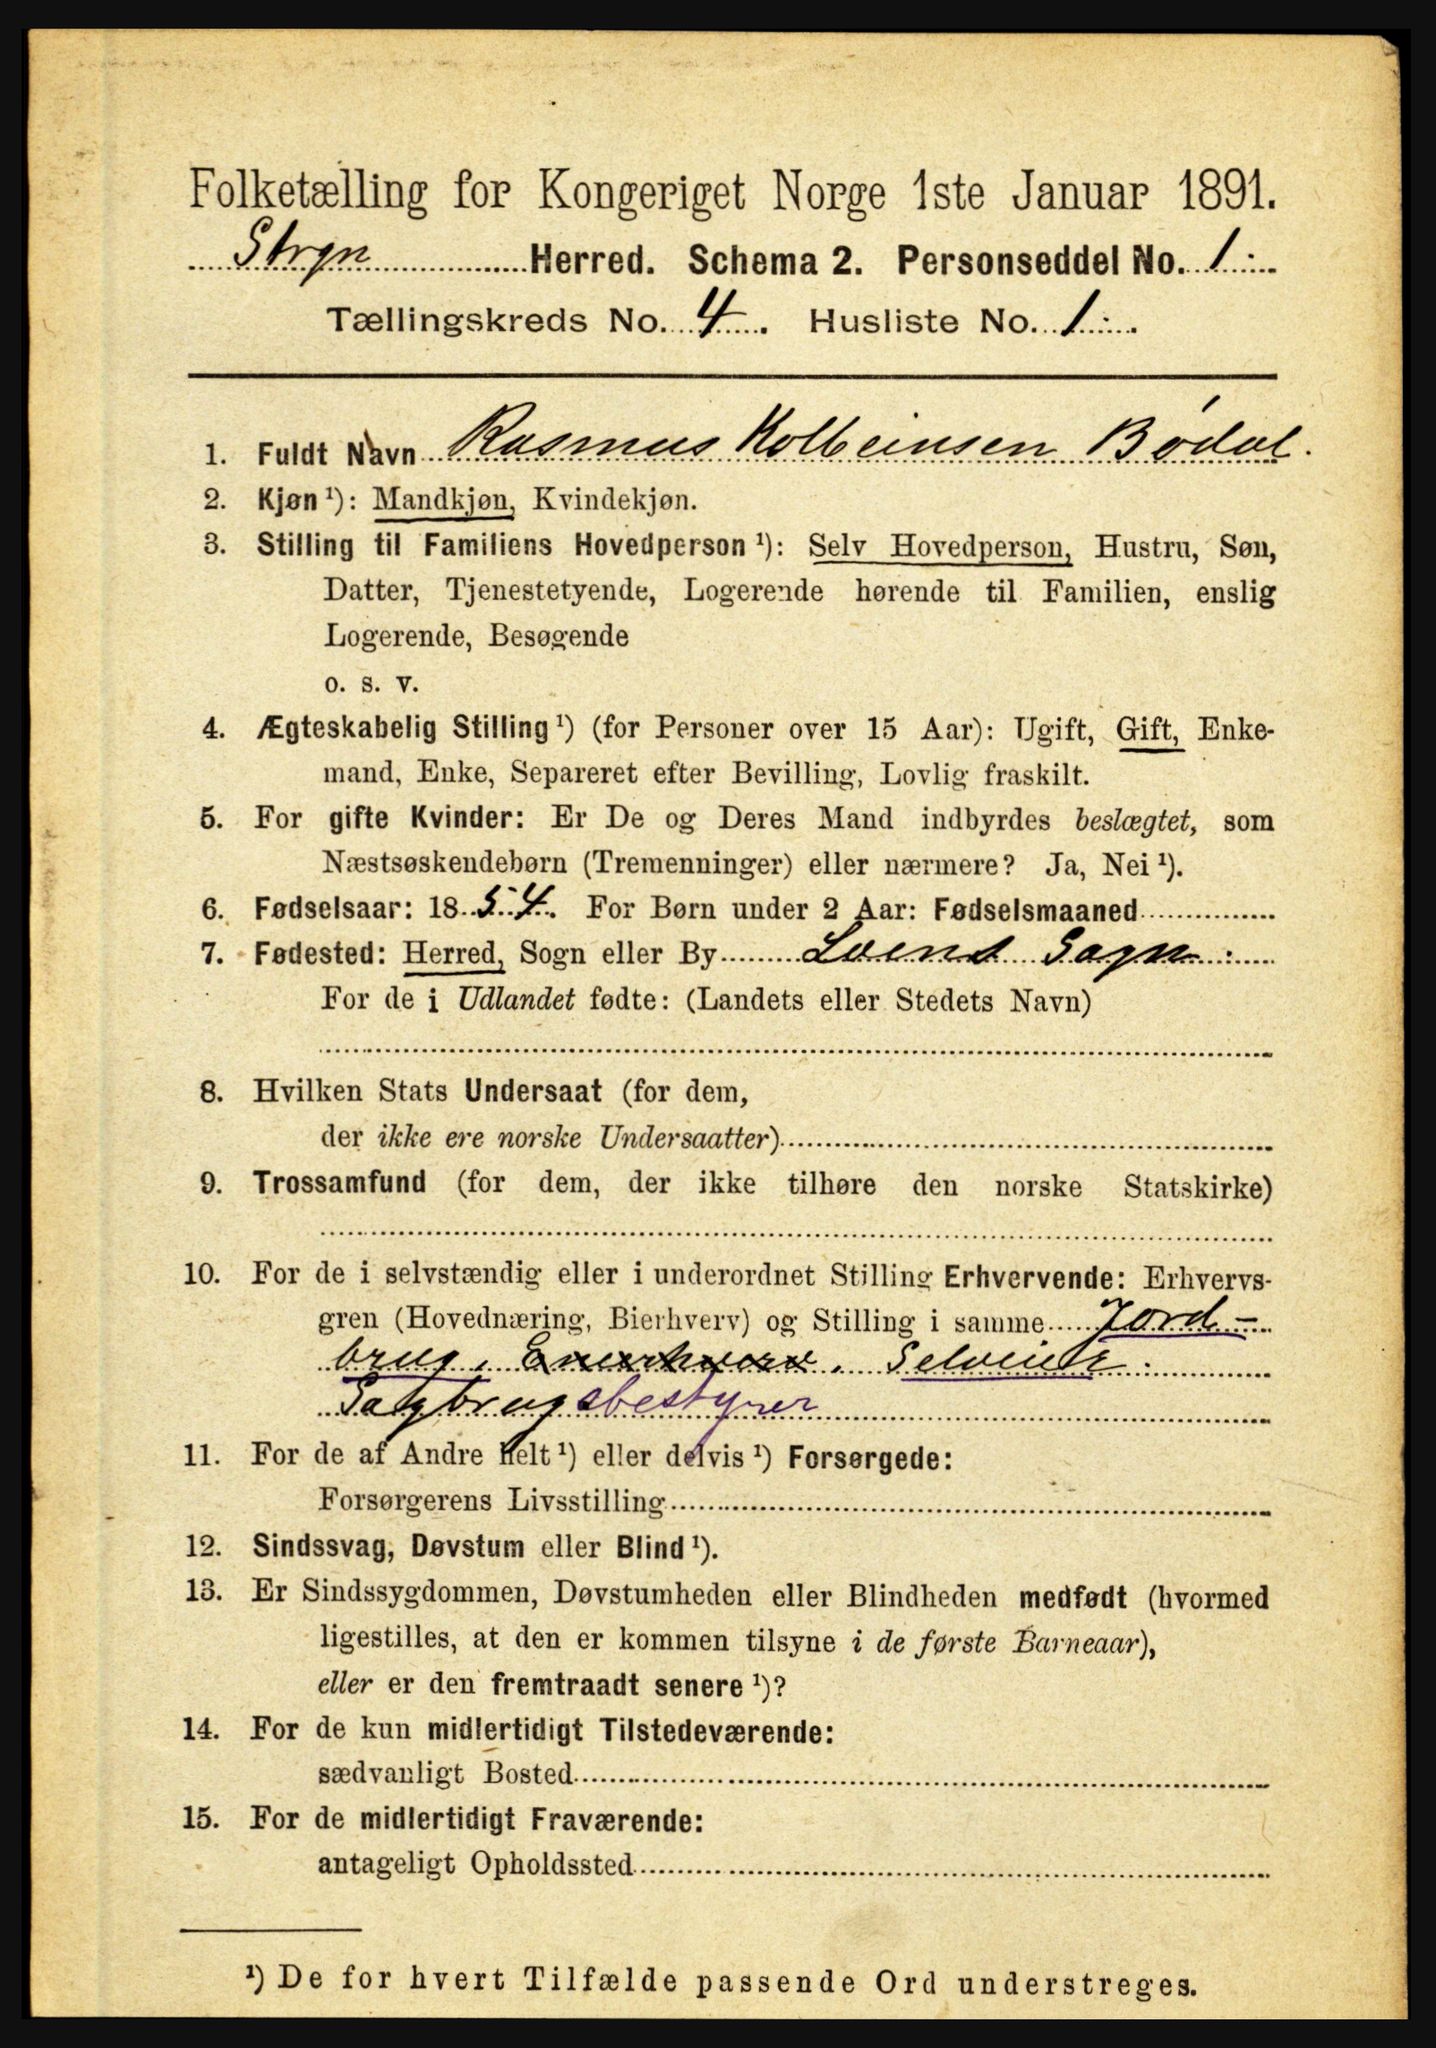 Folketælling for Kongeriget Norge 1ste Januar 1891.
Stryn Herred. Schema 2. Personseddel No. 1
Tællingskreds No. 4. Husliste No. 1.
1. Fuldt Navn Rasmus Kolbeinsen Bødal.
2. Kjøn ¹): Mandkjøn, Kvindekjøn.
3. Stilling til Familiens Hovedperson ¹): Selv Hovedperson, Hustru, Søn,
Datter, Tjenestetyende, Logerende hørende til Familien, enslig
Logerende, Besøgende
o. s. v.
4. Ægteskabelig Stilling ¹) (for Personer over 15 Aar): Ugift, Gift, Enke-
mand, Enke, Separeret efter Bevilling, Lovlig fraskilt.
5. For gifte Kvinder: Er De og Deres Mand indbyrdes beslægtet, som
Næstsøskendebørn (Tremenninger) eller nærmere? Ja, Nei ¹).
6. Fødselsaar: 1854. For Børn under 2 Aar: Fødselsmaaned
7. Fødested: Herred, Sogn eller By Loens Sogn
For de i Udlandet fødte: (Landets eller Stedets Navn)
8. Hvilken Stats Undersaat (for dem,
der ikke ere norske Undersaatter)
9. Trossamfund (for dem, der ikke tilhøre den norske Statskirke)
10. For de i selvstændig eller i underordnet Stilling Erhvervende: Erhvervs-
gren (Hovednæring, Bierhverv) og Stilling i samme Jord-
brug, Selveier
Sagbrugsbestyrer
11. For de af Andre helt ¹) eller delvis ¹) Forsørgede:
Forsørgerens Livsstilling
12. Sindssvag, Døvstum eller Blind ¹).
13. Er Sindssygdommen, Døvstumheden eller Blindheden medfødt (hvormed
ligestilles, at den er kommen tilsyne i de første Barneaar),
eller er den fremtraadt senere ¹)?
14. For de kun midlertidigt Tilstedeværende:
sædvanligt Bosted
15. For de midlertidigt Fraværende:
antageligt Opholdssted
¹) De for hvert Tilfælde passende Ord understreges.